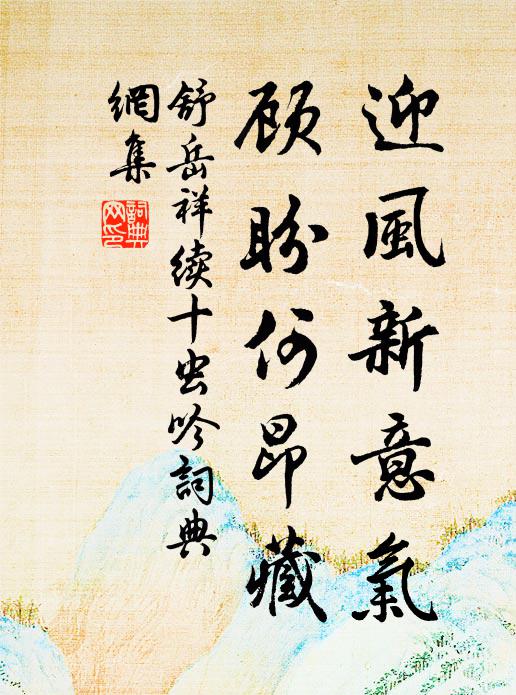 迎風新意氣
顧盼何昂藏
舒岳祥續十虫吟詞典
網集
詞典
网印